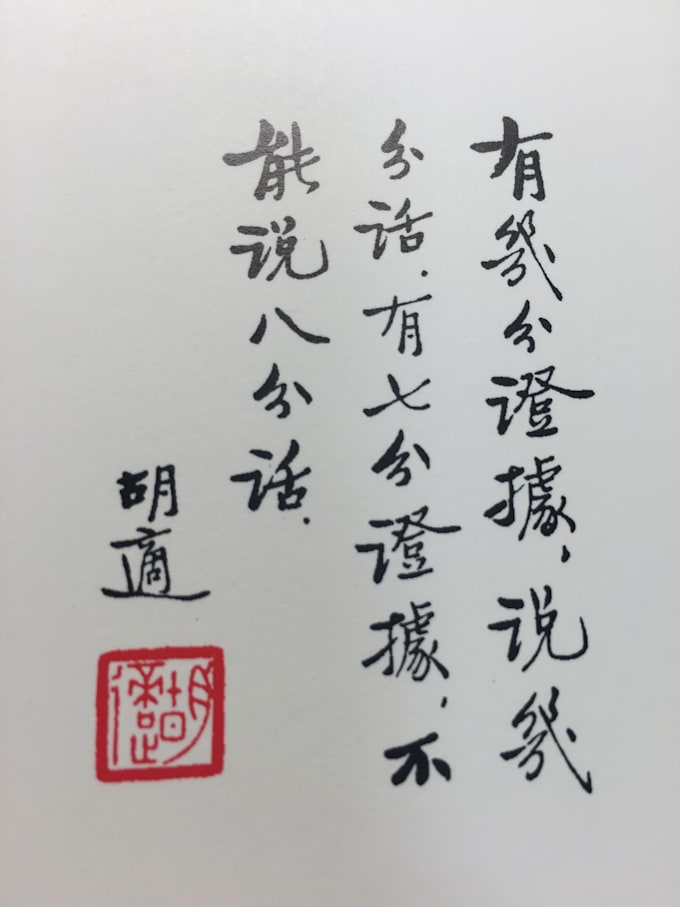 有幾分證據，说幾
分话．有七分證據，不
能说八分话．
胡適
胡適